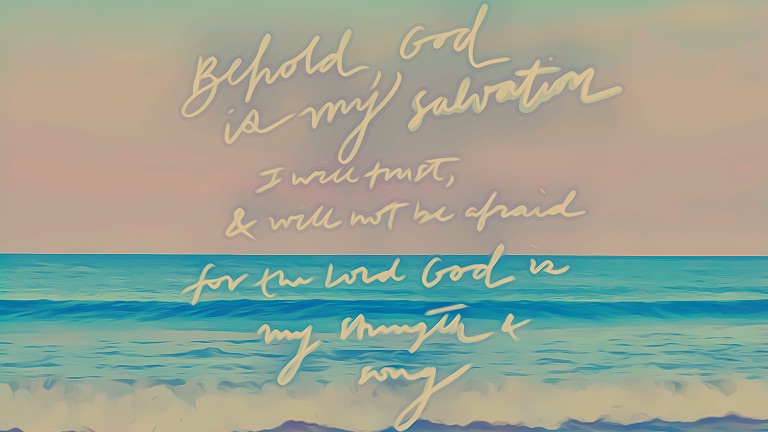 Behold, God
is my salvation
I will trust,
& will not be afraid
for the Lord God is
my strength &
song